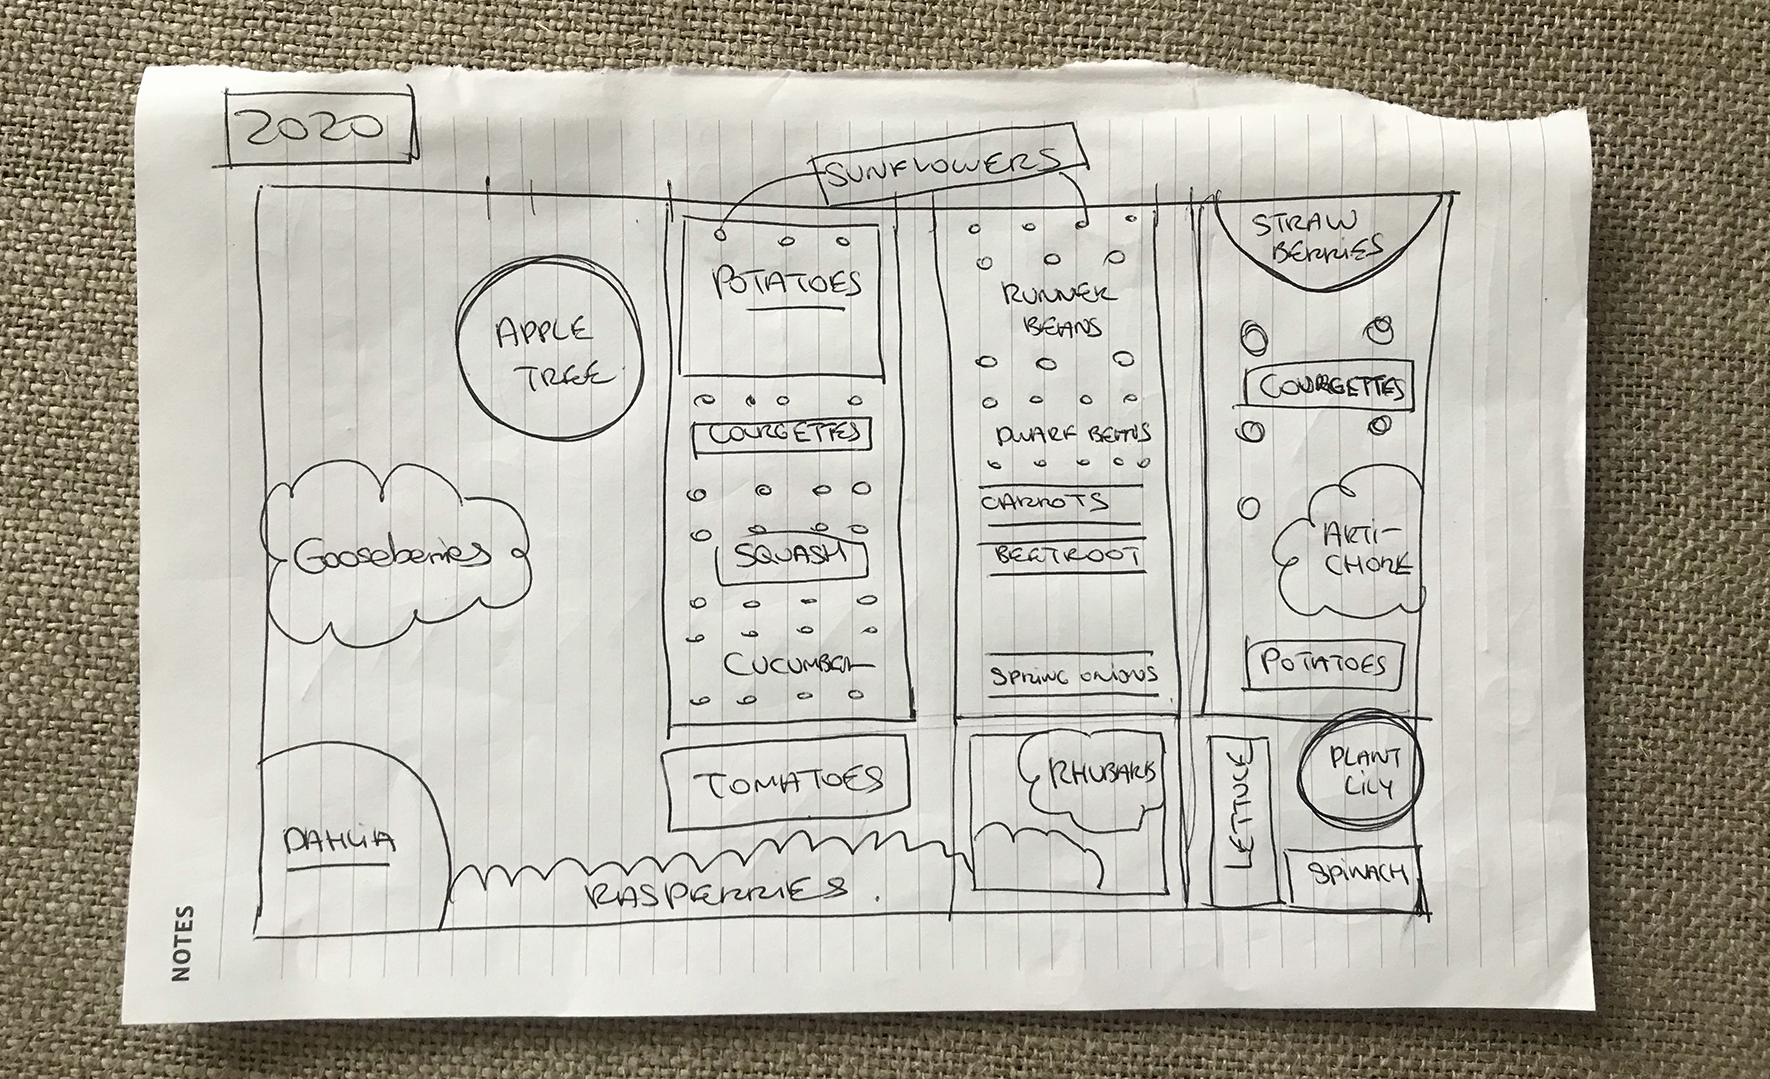 2020
SUNFLOWERS
APPLE
TREE
Gooseberries
DAHLIA
POTATOES
COURGETTES
SQUASH
CUCUMBER
TOMATOES
RASPBERRIES.
RUNNER
BEANS
DWARF BEANS
CARROTS
BEETROOT
SPRING ONIONS
RHUBARB
STRAW
BERRIES
COURGETTES
ARTI-
CHOKE
POTATOES
LETTUCE
PLANT
LILY
SPINACH
NOTES